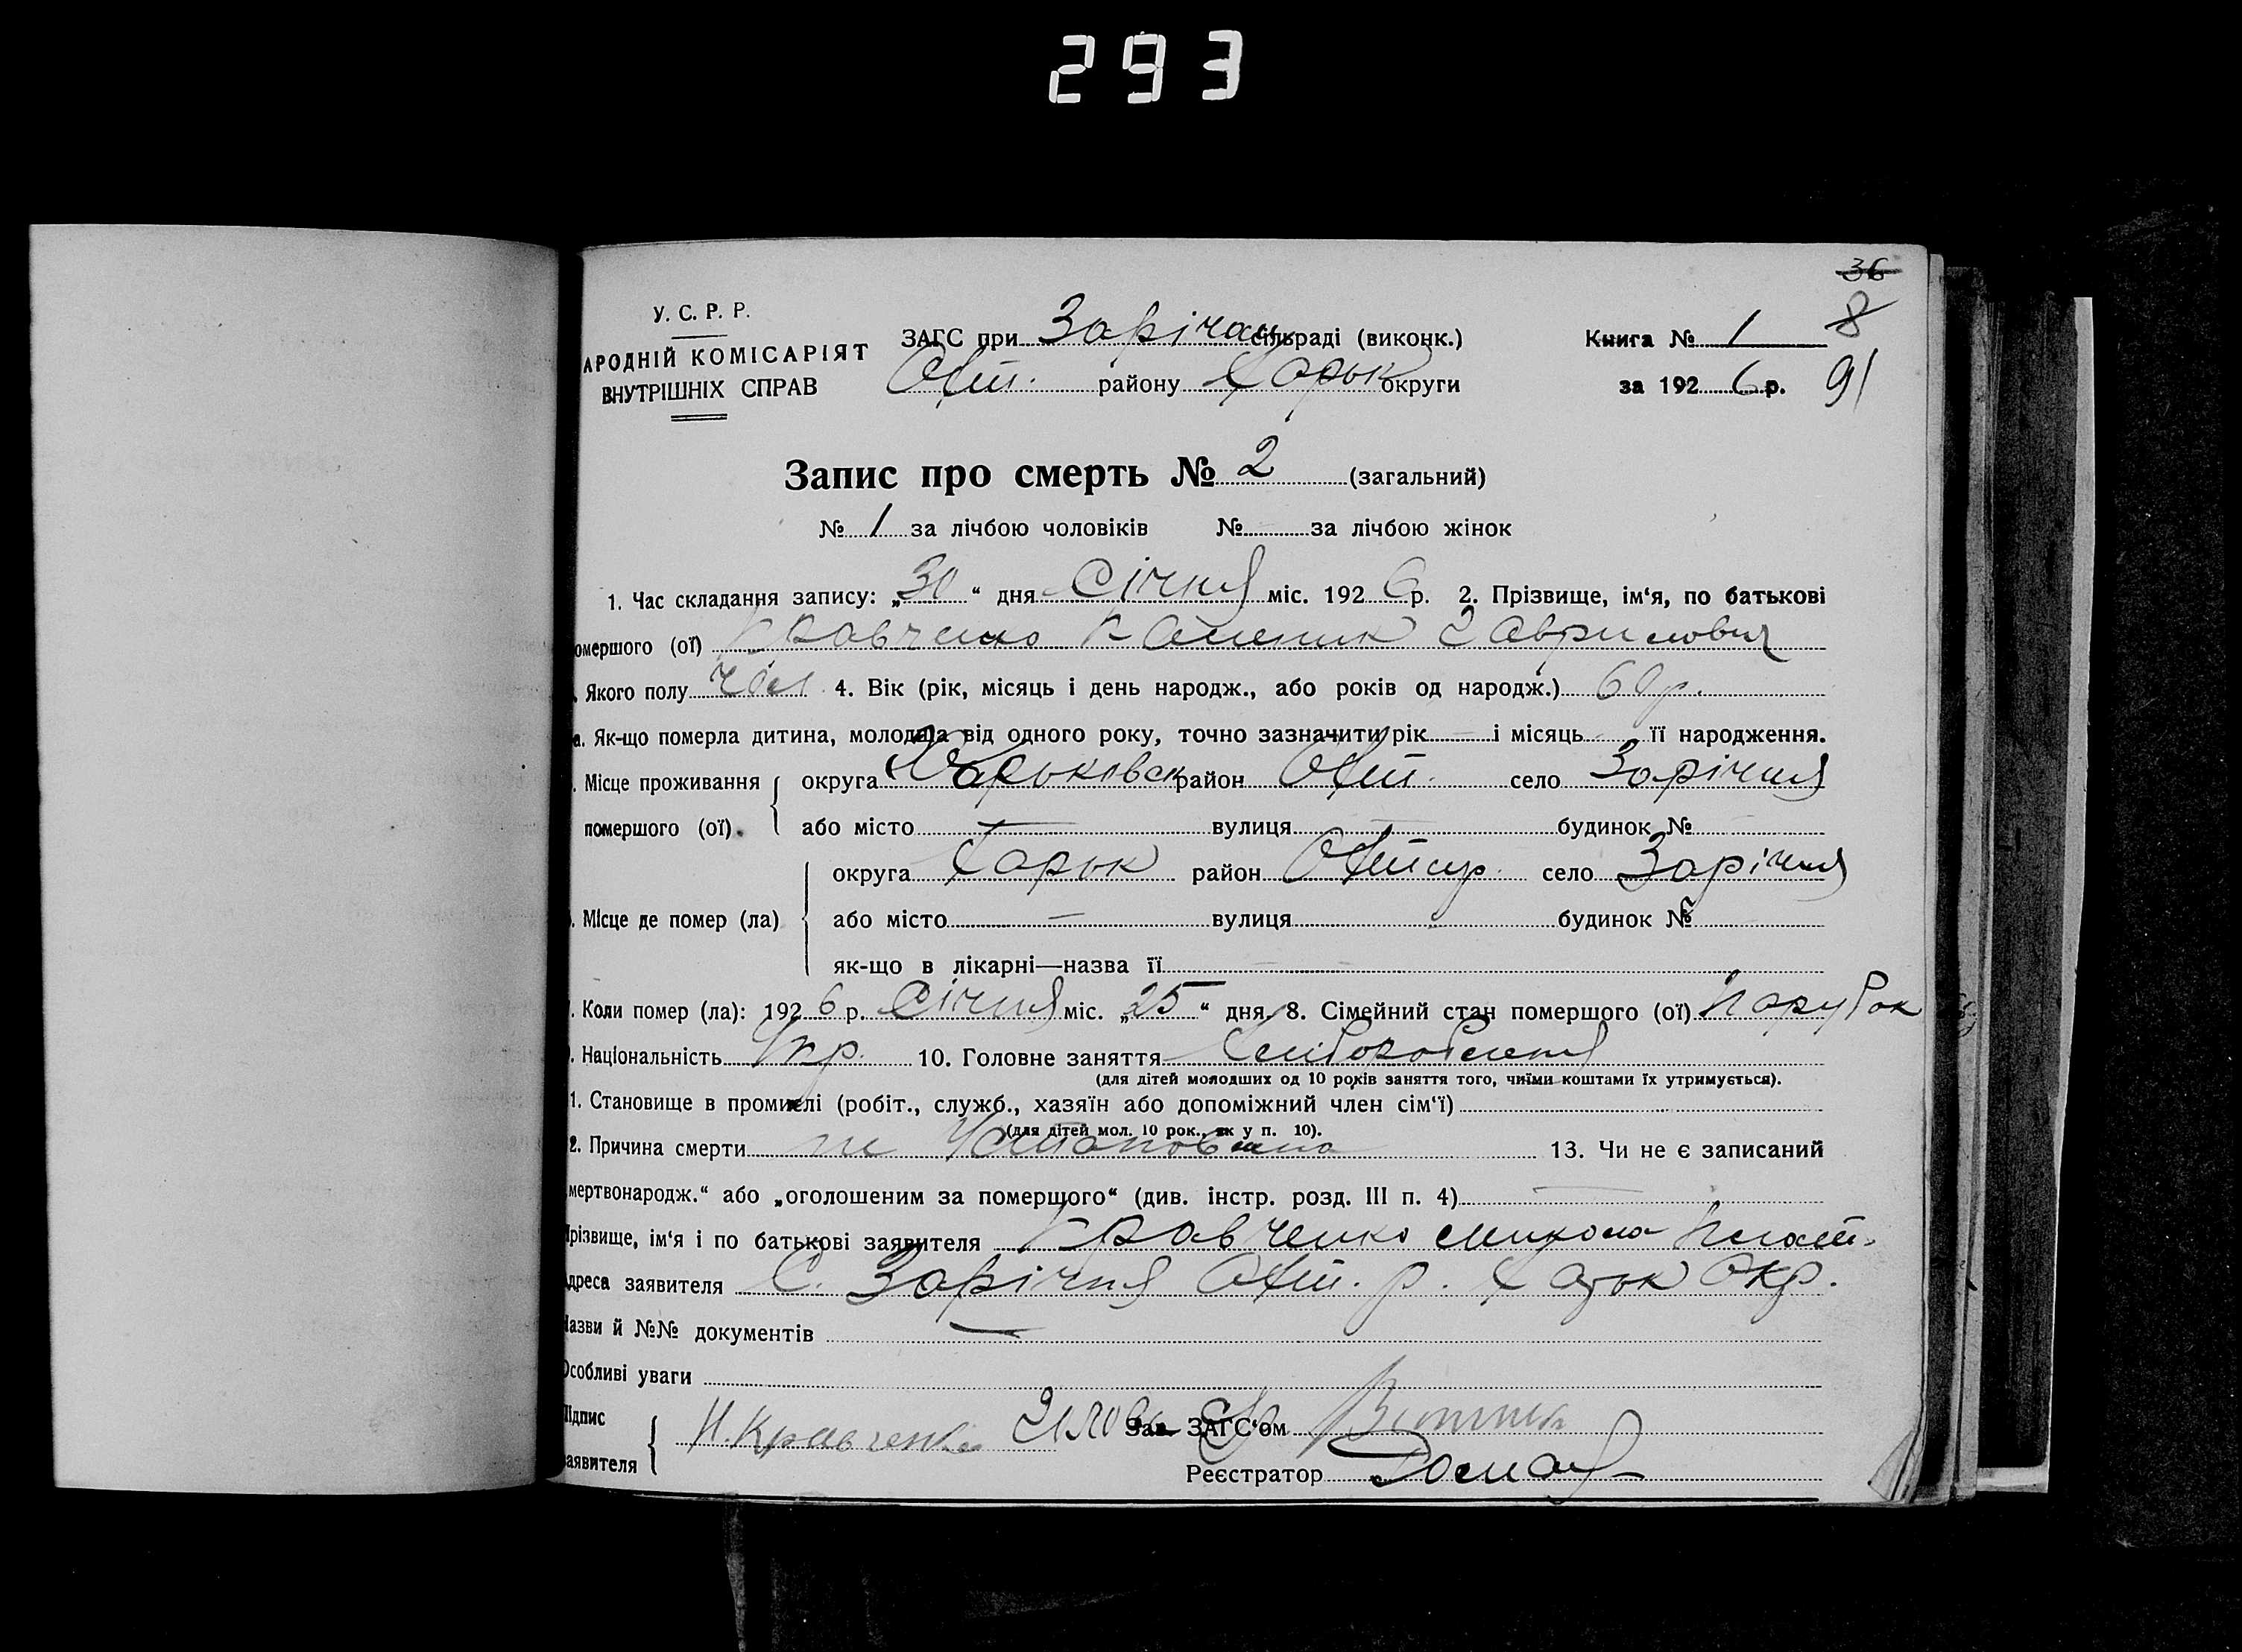 293
36
У. С. Р. Р.
ЗАГС при Зарічан сільраді (виконк.) Книга № 1 8
АРОДНІЙ КОМІСАРІЯТ
ВНУТРІШНІХ СПРАВ
Охт. району Харьк округи за 1926 р. 91
Запис про смерть № 2 (загальний)
№ 1 за лічбою чоловіків № за лічбою жінок
1. Час складання запису: „30“ дня Січня міс. 1926 р. 2. Прізвище, ім‘я, по батькові
омершого (ої) Кравченко Гаврилович
. Якого полу чол 4. Вік (рік, місяць і день народж., або років од народж.) 60 р.
а. Як-що померла дитина, молодша від одного року, точно зазначити рік — і місяць її народження.
. Місце проживання округа Харьковськ район Охт. село Зарічня
помершого (ої). або місто — вулиця — будинок №
округа Харьк район Охтир. село Зарічня
. Місце де помер (ла) або місто — вулиця будинок №
як-що в лікарні—назва її — —
. Коли помер (ла): 1926 р. Січня міс. „25“ дня. 8. Сімейний стан помершого (ої) парубок
. Національність Укр. 10. Головне заняття Хліборобення
(для дітей молодших од 10 років заняття того, чиїми коштами їх утримується).
1. Становище в промислі (робіт., служб., хазяїн або допоміжний член сім‘ї)
(для дітей мол. 10 рок., як у п. 10).
2. Причина смерти не Установлена 13. Чи не є записаний
мертвонародж.“ або „оголошеним за померщого“ (див. інстр. розд. III п. 4) —
Прізвище, ім‘я і по батькові заявителя Кравченко Микола
Адреса заявителя С. Зарічня Охт. р. Харьк Окр.
Назви й №№ документів —
Особливі уваги
Підпис
заявителя Н. Кравченко Голова Зав. ЗАГС‘ом
Реєстратор